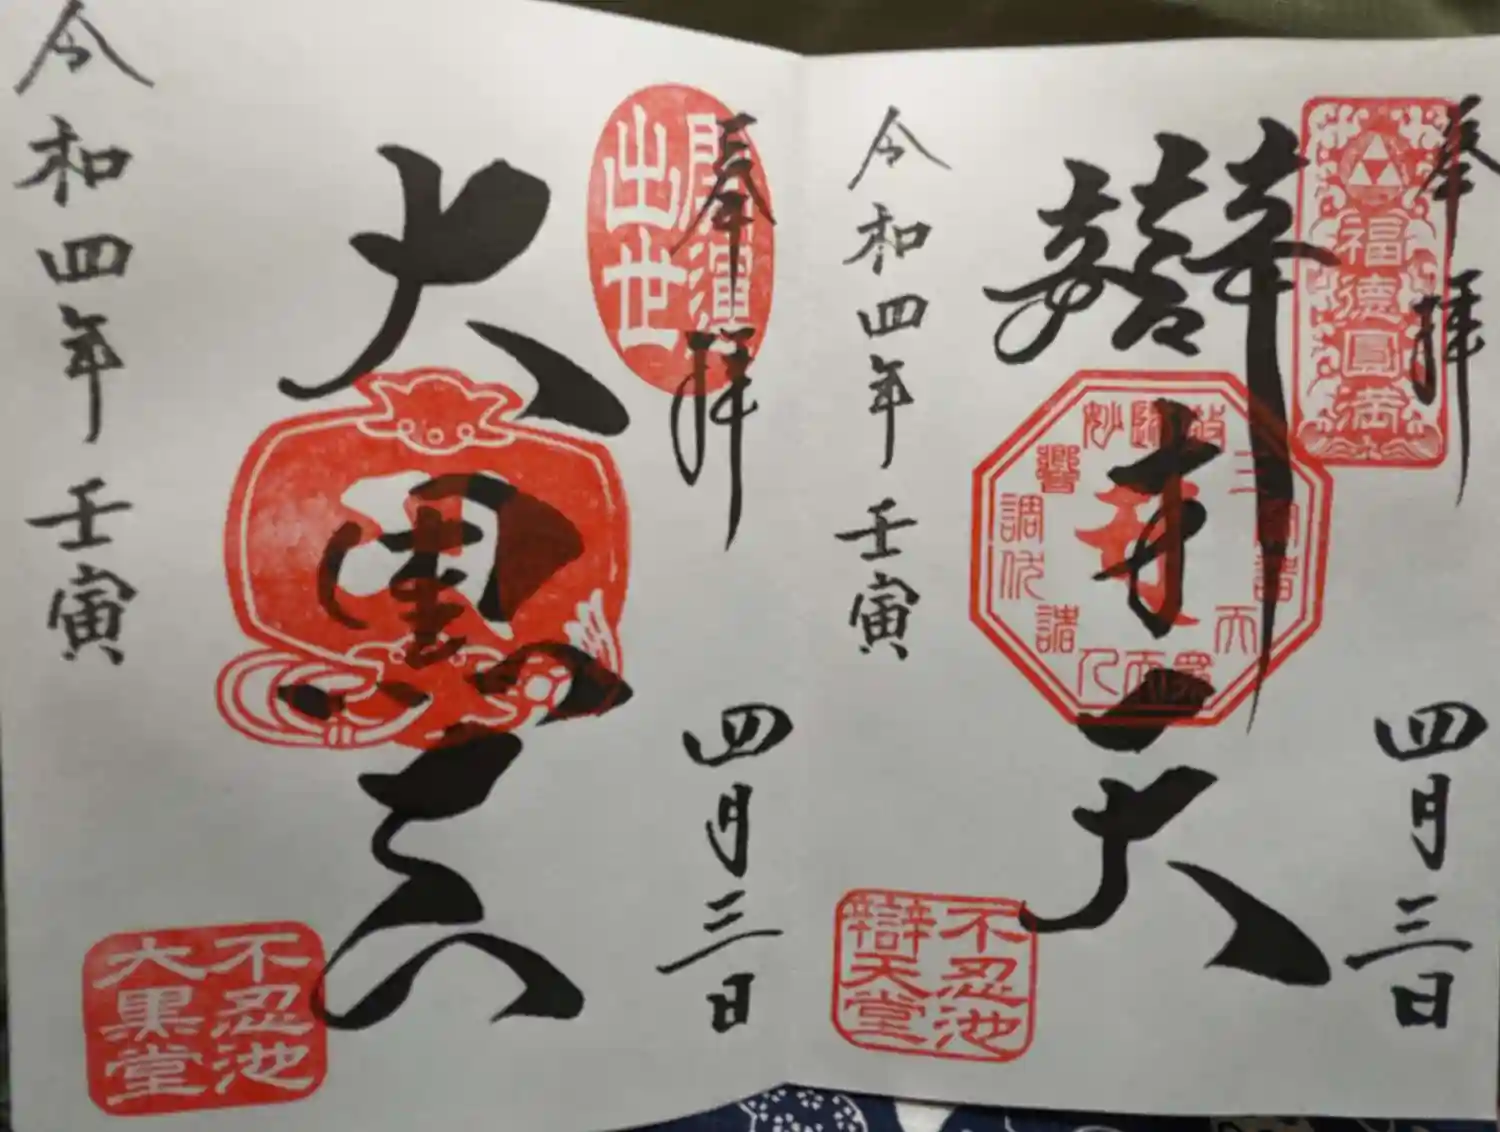 奉拝
福德圓満
四月三日
辯才天
令和四年壬寅
不忍池
辯天堂
奉拝
開運
出世
四月三日
大黒天
令和四年壬寅
不忍池
大黒堂